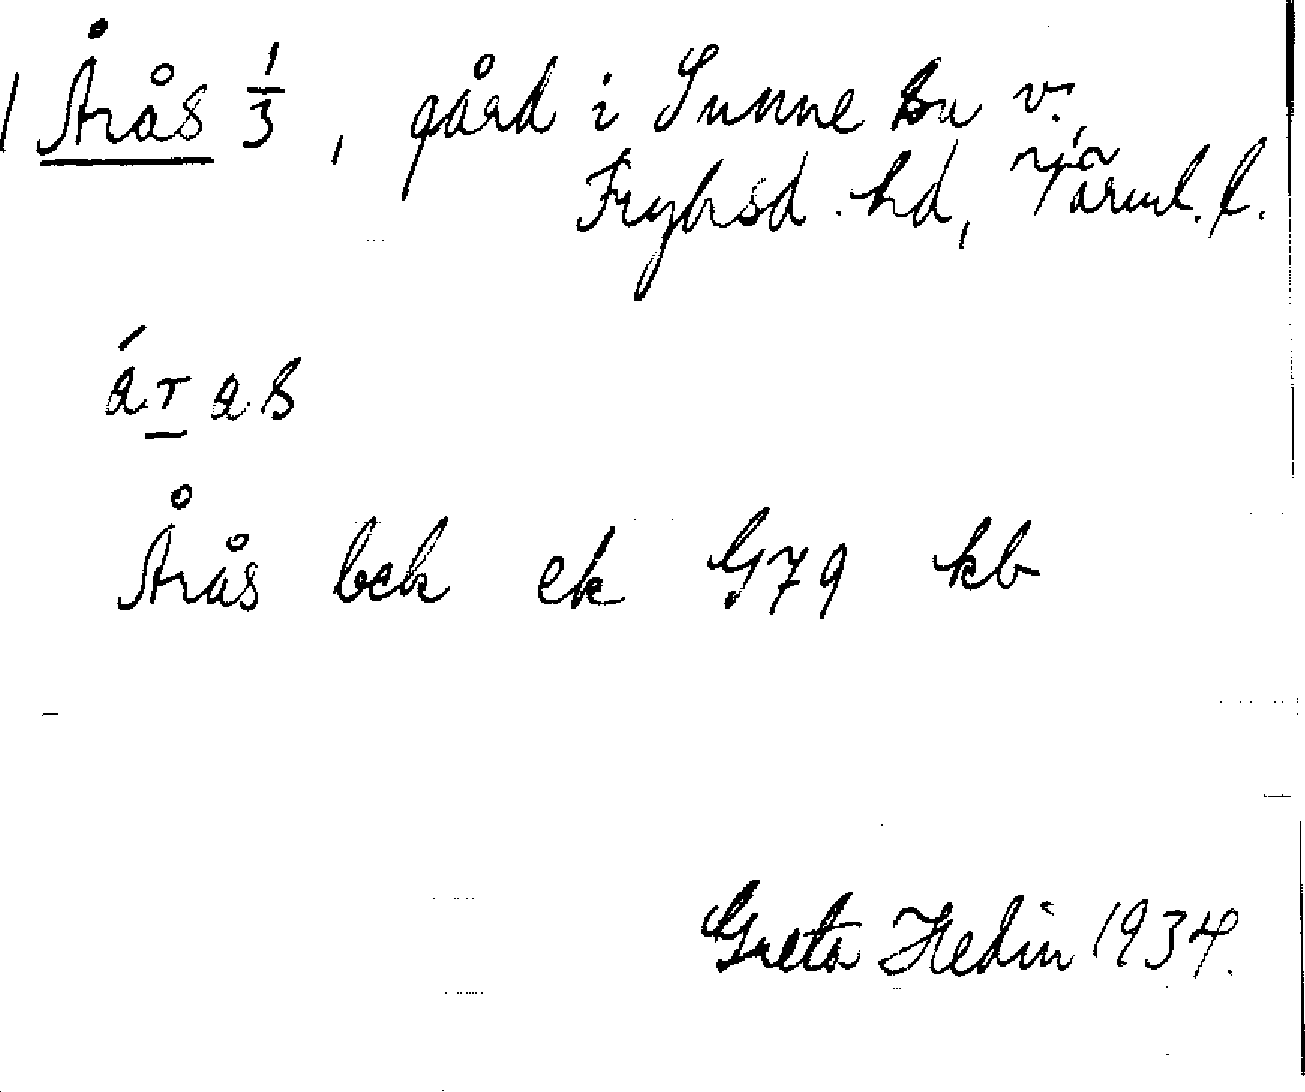 Årås 1/3, gård i Sunne sn v.
Fryksd. hd, Värml. l.
Årås bek ek G79 kb
Greta Hedin 1934.